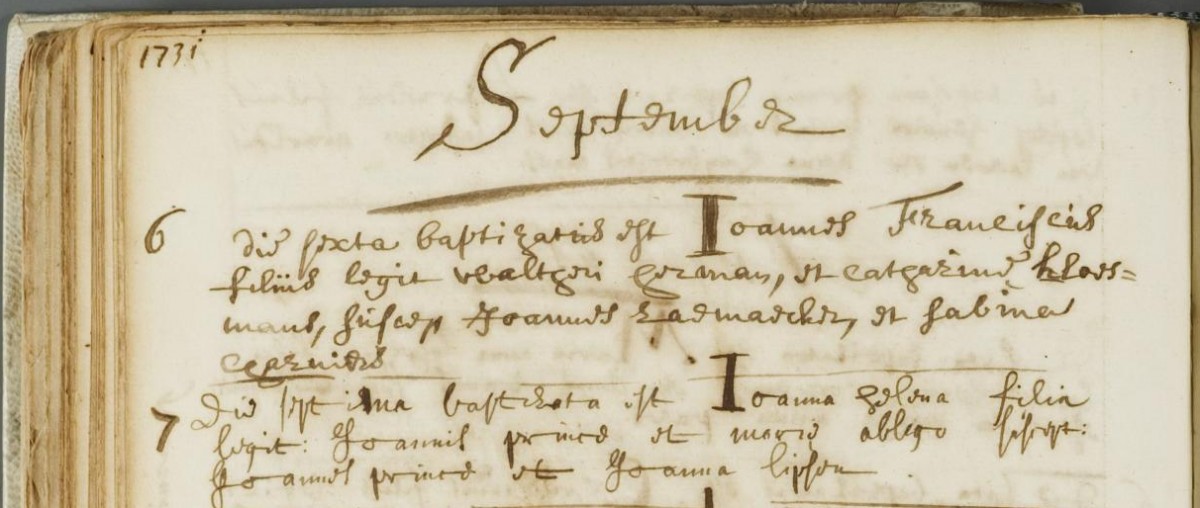 1731
September
6 die sexta baptizatus est Joannes Franciscus
filius legit waltheri herman, et catharinę kloes=
mans, suscep Joannes rademaecker, et sabina
7 Die septima baptizata est Joanna helena filia
legit: Joannis prince et marie suscept:
Joannes prince et Joanna lipsen